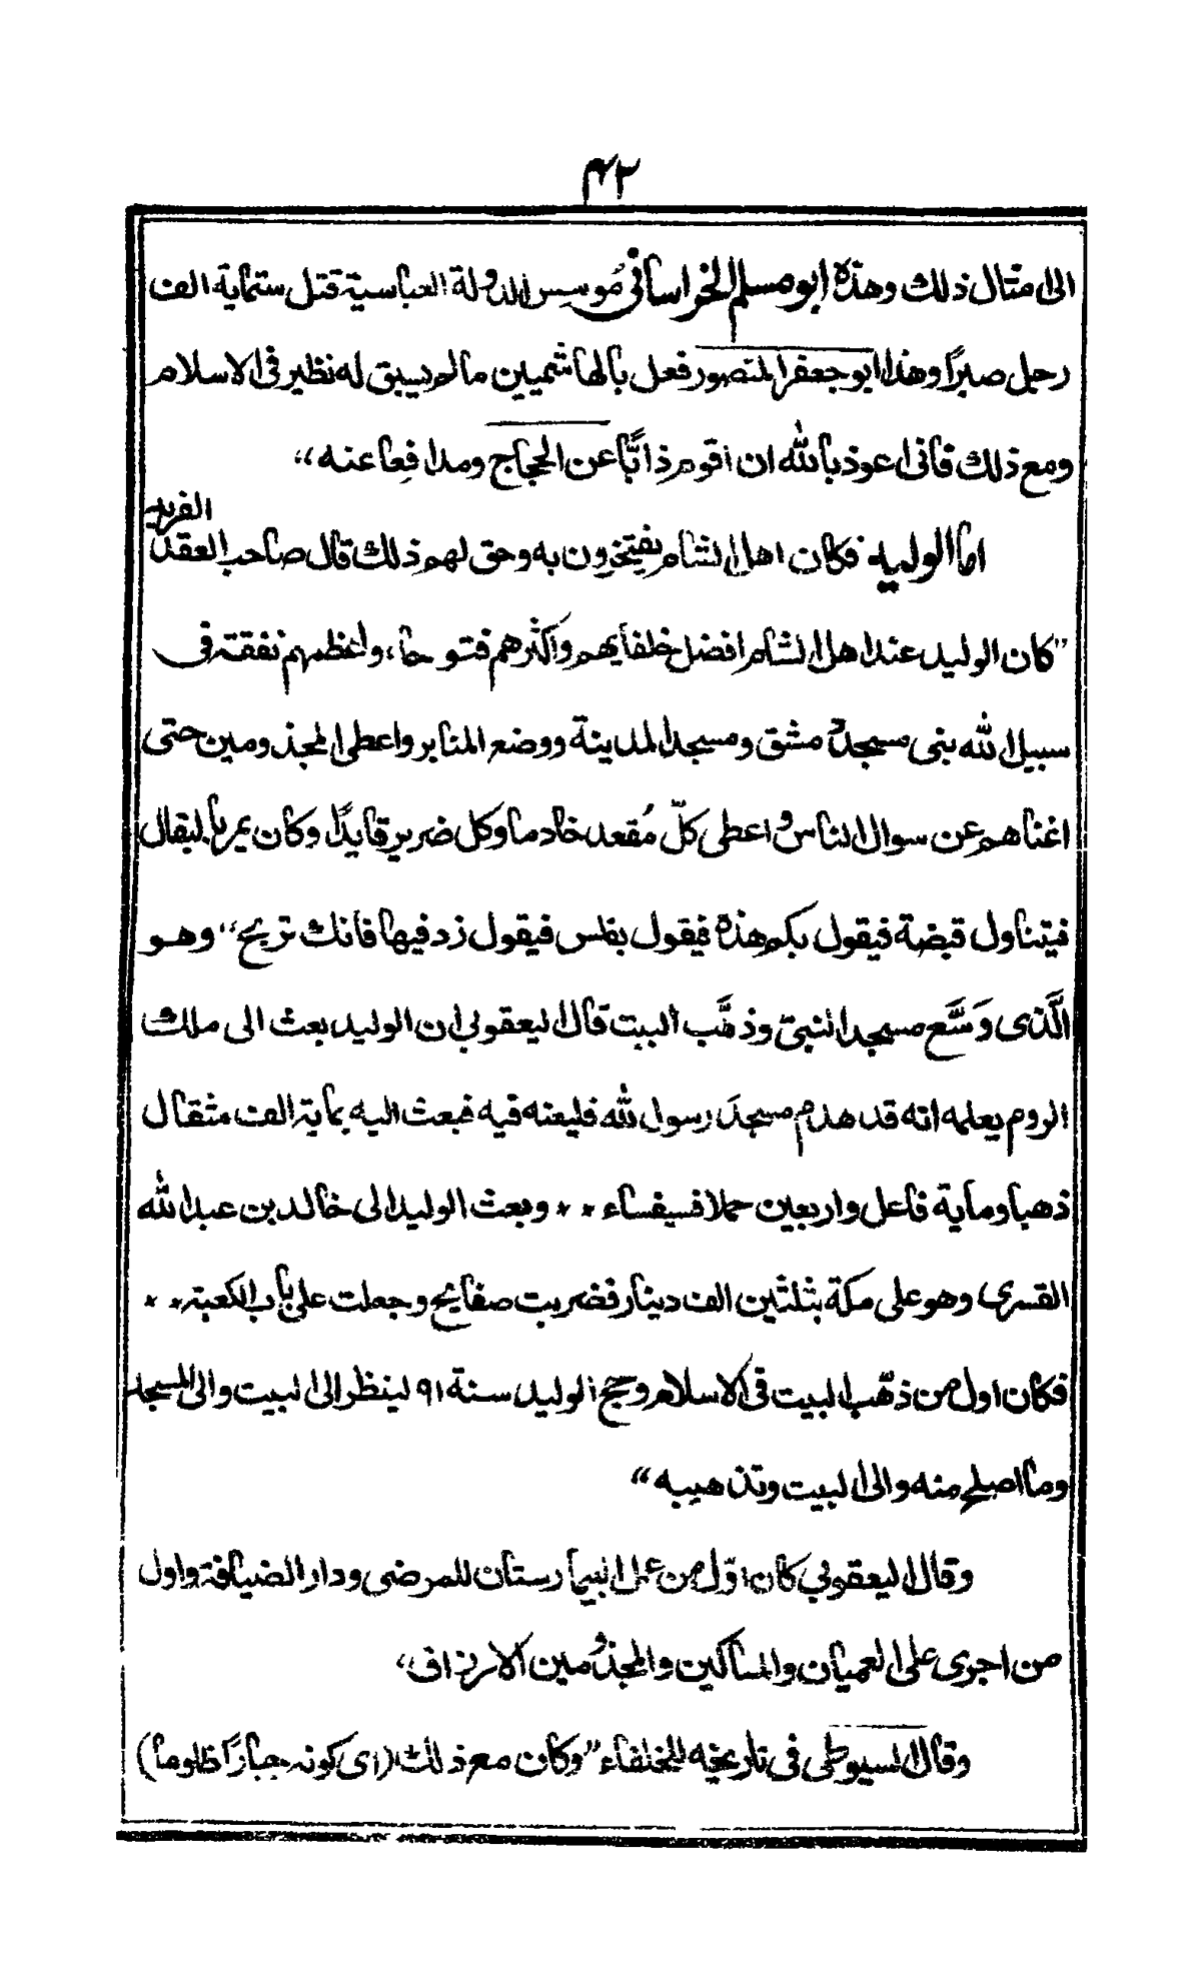 ۴۲
الى امثال ذلك وهذه ابو مسلم الخراسانى مُوسس الدولة العباسية قتل ستماية الف
رجل صبرًا وهذا ابو جعفر المنصور فعل بالهاشميين مالم يسبق له نظير فى الاسلام
ومع ذلك فانى اعوذ بالله ان اقوم ذابًّا عن الحجاج ومدافعا عنه،،
اما الوليد فكان اهل الشام يفتخرون به وحق لهم ذلك قال صاحب العقد الفريد
”كان الوليد عند اهل الشام افضل خلفايهم واكثرهم فتوحا، واعظمهم نفقة فى
سبيل الله بنى مسجد دمشق ومسجد المدينة ووضع المنابر واعطى المجذومين حتى
اغناهم عن سوال الناس و اعطى كلّ مُقعد خادما وكل ضرير قايدًا وكان يمر بالبقال
فيتناول قبضة فيقول بكم هذه فيقول بفلس فيقول زد فيها فانك تربح،، وهو
الَّذى وَسَّع مسجد النبىّ وذهَّب البيت قال اليعقوبى ان الوليد بعث الى ملك
الروم يعلمه انه قد هدم مسجدَ رسول الله فليعنه فيه فبعث اليه بماية الف مثقال
ذهبا وماية فاعل واربعين حملا فسيفساء ٭ ٭ وبعث الوليد الى خالد بن عبد الله
القسرى وهو على مكة بثلثين الف دينار فضربت صفايح وجعلت على باب الكعبة ٭ ٭
فكان اول من ذهّب البيت فى الاسلام وحج الوليد سنة ۹۱ لينظر الى البيت والى المسجد
وما اصلح منه والى البيت وتذهيبه“
وقال اليعقوبي كان اوّل من عمل البيمارستان للمرضى ودار الضيافة واول
من اجرى على العميان والمساكين والمجذومين الارزاق،
وقال السيوطى فى تاريخه للخلفاء ”وكان مع ذلك (اى كونه جبارًا ظلوما)